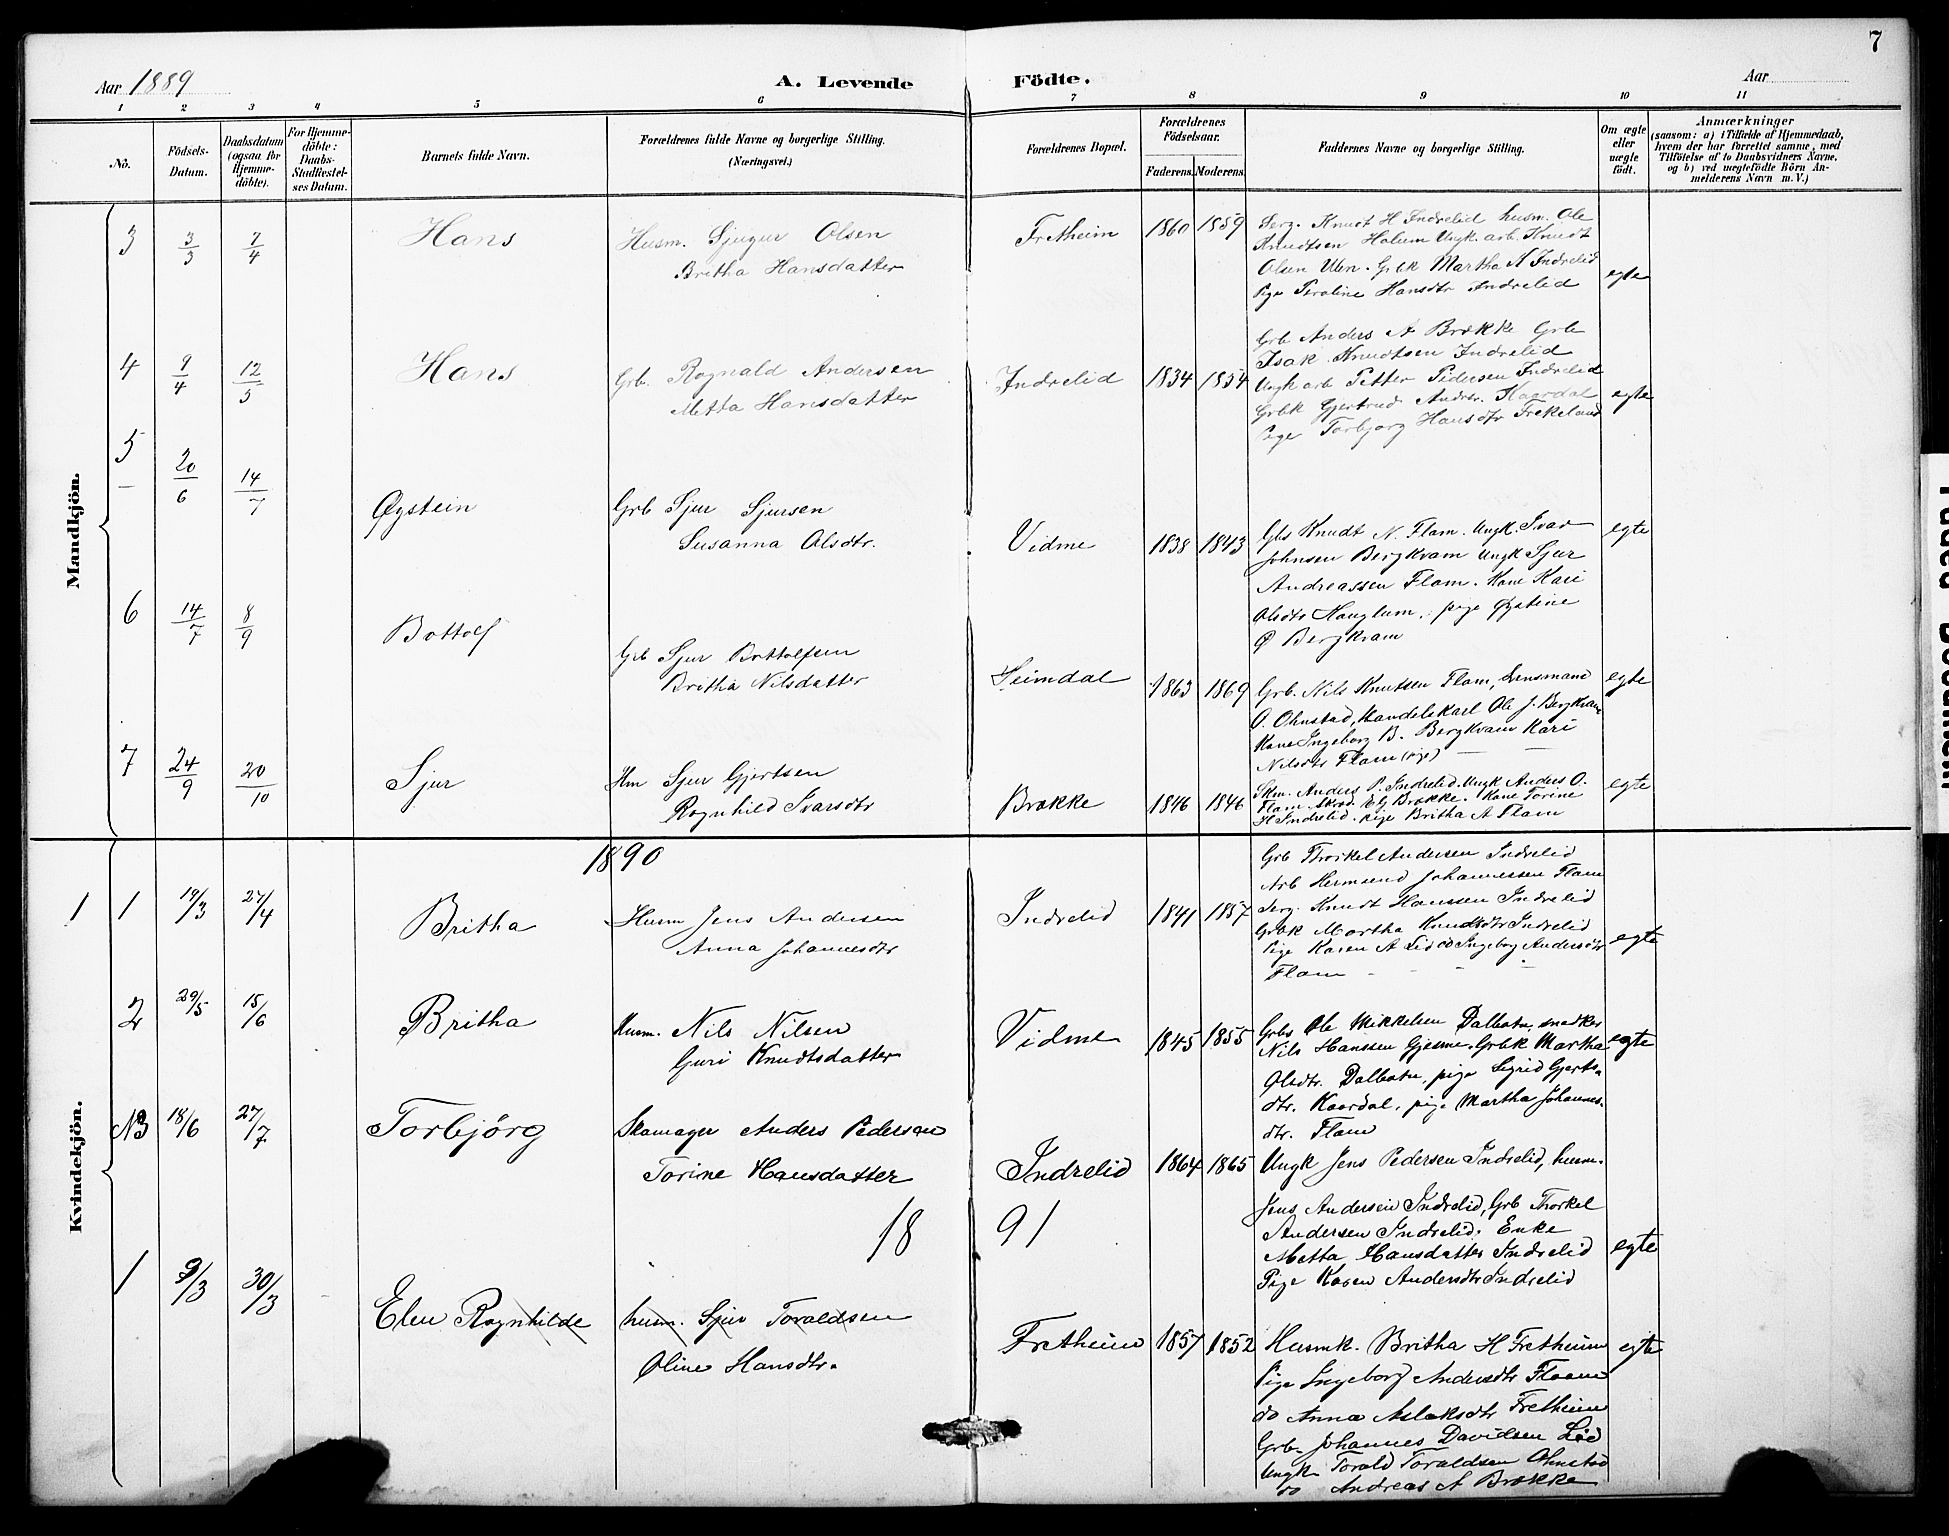 7
Aar 1889
A. Levende Födte.
Aar
1 2 3 4 5 6 7 8 9 10 11
No.
Födsels-Datum.
Daabsdatum (ogsaa for Hjemme-döbte).
For Hjemme-döbte: Daabs-Stadfæstel-ses Datum.
Barnets fulde Navn.
Forældrenes fulde Navne og borgerlige Stilling. (Næringsvei.)
Forældrenes Bopæl.
Forældrenes Födselsaar.
Faderens. Moderens.
Faddernes Navne og borgerlige Stilling.
Om ægte eller uægte födt.
Anmærkninger
(saasom: a) i Tilfælde af Hjemmedaab, hvem der har forrettet samme, med Tilföielse af to Daabsvidners Navne, og b) ved uægtefödte Börn An-melderens Navn m. V.)
Mandkjön.
3 3/3 7/4 Hans
Husm. Sjugur Olsen
Britha Hansdatter
Fretheim 1860 1859
Serg. Knudt H Indrelid husm. Ole
Knudtsen Holum Ungk. arb. Knudt
Olsen Uen. Grbk Martha A Indrelid
Pige Peroline Hansdtr Indrelid
egte
4 9/4 12/5 Hans
Grb. Rognald Andersen
Metta Hansdatter
Indrelid 1834 1854
Grb Anders A Brekke Grb
Isak Knudtsen Indrelid
Ungk arb Petter Pedersen Indrelid
Grbk Gjertrud Andr. Kaardal
Pige Torbjorg Hansdtr Frekeland
egte
5 20/6 14/7 Øystein
Grb Sjur Sjursen
Susanna Olsdtr.
Vidme 1838 1843
Gbs Knudt N. Flam. Ungk. Ivar
Johnsen Bergkvam Ungk Sjur
Andreassen Flam. Kone Kari
Olsdtr Hauglum, pige Øystine
Ø Bergkvam
egte
6 14/7 8/9 Bottolf
Grb Sjur Bottolfsen
Britha Nilsdatter
Seimdal 1863 1869
Grb. Nils Knutsen Flam, Lensmand
O. Ohnstad, Handelskarl Ole J. Bergkvam
Kone Ingeborg B. Bergkvam Kari
Nilsdtr Flam (pige)
egte
7 24/9 20/10 Sjur
Hm Sjur Gjertsen
Rognhild Ivarsdtr
Brække 1846 1846
Skm. Anders P. Indrelid. Ungk Anders O.
Flam. Skræd. E G Brække. Kone Torine
H Indrelid. pige Britha A Flam
egte
1890
Kvindekjön.
1 1 19/3 27/4 Britha
Husm Jens Andersen
Anna Johannesdtr
Indrelid 1841 1857
Grb Thorkel Andersen Indrelid
Arb Hermund Johannessen Flam
Serg. Knudt Hanssen Indrelid
Grbk Martha Knudtdtr Indrelid
Pige Karen A Lid do Ingebog Andersdtr
Flam
egte
2 29/5 15/6 Britha
Husm. Nils Nilsen
Guri Knudtsdatter
Vidme 1845 1855
Grbs Ole Mikkelsen Dalbotn, snedker
Nils Hanssen Gjesme. Grbk Martha
Olsdtr. Dalbotn, pige Sigrid Gjerts-
dtr. Kaardal, pige Martha Johannes-
dtr. Flam
egte
N3 18/6 27/7 Torbjörg
Skomager Anders Pedersen
Torine Hansdatter
Indrelid 1864 1865
Ungk Jens Pedersen Indrelid, husm.
Jens Andersen Indrelid, Grb Thorkel
Andersen Indrelid. Enke
Metta Hansdatter Indrelid
Pige Karen Andersdtr Indrelid
egte
1891
1 9/3 30/3 Elen Ragnhilde
husm. Sjur Toraldsen
Oline Hansdtr.
Fretheim 1857 1852
Husmk. Britha H Fretheim
Pige Ingeborg Andersdtr Flaam
do Anna Aslaksdtr Fretheim
Grb. Johannes Davidsen Lid
Ungk Torald Toraldsen Ohnstad
do Andreas A Brekke
egte